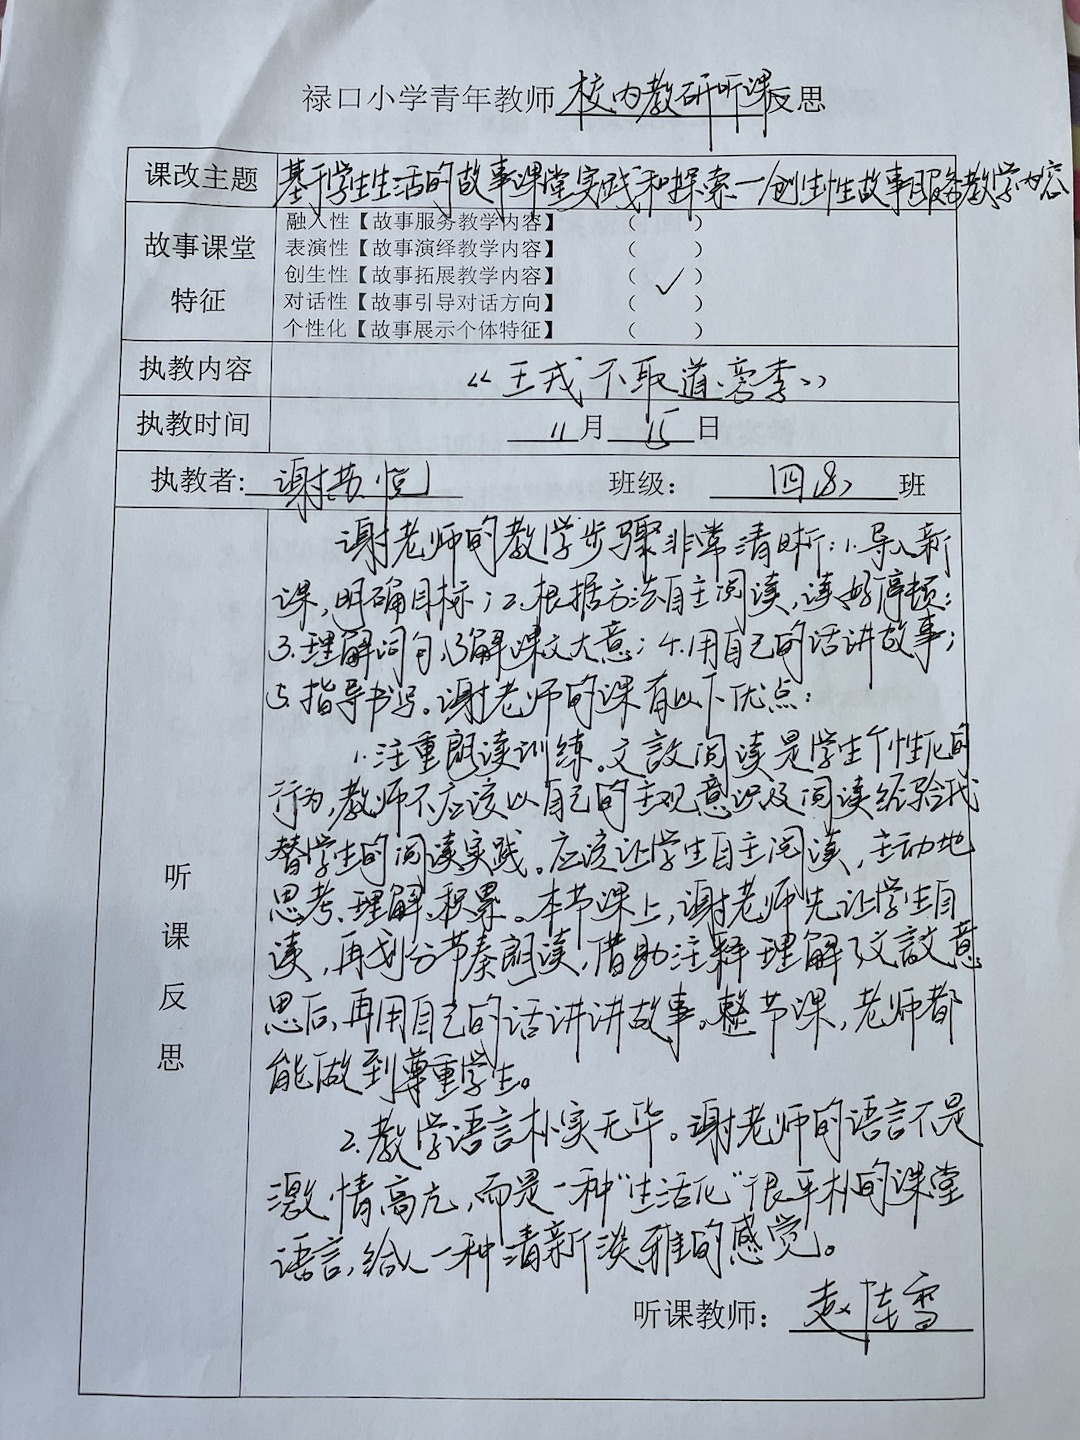 禄口小学青年教师校内教研听课反思
课改主题 基于学生生活的故事课堂实践和探索—创生性故事服务教学内容
故事课堂特征
融入性【故事服务教学内容】 （ ）
表演性【故事演绎教学内容】 （ ）
创生性【故事拓展教学内容】 （✓）
对话性【故事引导对话方向】 （ ）
个性化【故事展示个体特征】 （ ）
执教内容 《王戎不取道旁李》
执教时间 11月15日
执教者: 谢 悦 班级： 四 班
听课反思
谢老师的教学步骤非常清晰：1.导入新
课，明确目标；2.根据方法自主阅读，读好停顿；
3.理解词句，了解课文大意；4.用自己的话讲故事；
5.指导书写。谢老师的课有以下优点：
1.注重朗读训练。文言文阅读是学生个性化的
行为，教师不应该以自己的主观意识及阅读经验代
替学生的阅读实践。应该让学生自主阅读，主动地
思考、理解、积累。本节课上，谢老师先让学生自
读，再划分节奏朗读，借助注释理解了文章意
思后，再用自己的话讲讲故事。整节课，老师都
能做到尊重学生。
2.教学语言朴实无华。谢老师的语言不是
激情高亢，而是一种“生活化”很平朴的课堂
语言，给人一种清新淡雅的感觉。
听课教师： 赵 雪